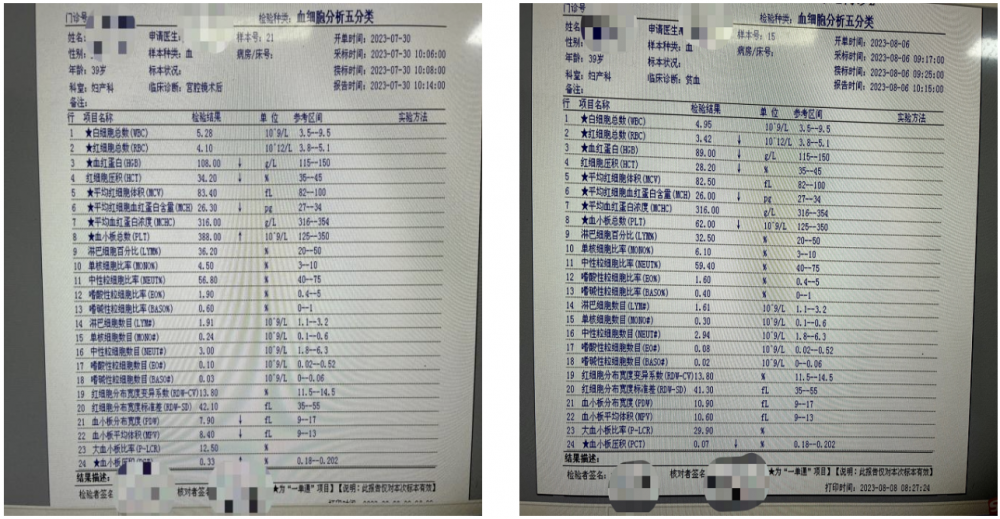 门诊号
检验种类: 血细胞分析五分类
姓名:
申请医生:
样本号: 21
开单时间: 2023-07-30
性别:
样本种类: 血
病房/床号:
采标时间: 2023-07-30 10:06:00
年龄: 39岁
标本状况:
接标时间: 2023-07-30 10:08:00
科室: 妇产科
临床诊断: 宫腔镜术后
报告时间: 2023-07-30 10:14:00
备注:
行 项目名称 检验结果 单 位 参考区间 实验方法
1 ★白细胞总数(WBC) 5.28 10^9/L 3.5--9.5
2 ★红细胞总数(RBC) 4.10 10^12/L 3.8--5.1
3 ★血红蛋白(HGB) 108.00 ↓ g/L 115--150
4 红细胞压积(HCT) 34.20 ↓ % 35--45
5 ★平均红细胞体积(MCV) 83.40 fL 82--100
6 ★平均红细胞血红蛋白含量(MCH) 26.30 ↓ pg 27--34
7 ★平均血红蛋白浓度(MCHC) 316.00 g/L 316--354
8 ★血小板总数(PLT) 388.00 ↑ 10^9/L 125--350
9 淋巴细胞百分比(LYM%) 36.20 % 20--50
10 单核细胞比率(MONO%) 4.50 % 3--10
11 中性粒细胞比率(NEUT%) 56.80 % 40--75
12 嗜酸性粒细胞比率(EO%) 1.90 % 0.4--5
13 嗜碱性粒细胞比率(BASO%) 0.60 % 0--1
14 淋巴细胞数目(LYM#) 1.91 10^9/L 1.1--3.2
15 单核细胞数目(MONO#) 0.24 10^9/L 0.1--0.6
16 中性粒细胞数目(NEUT#) 3.00 10^9/L 1.8--6.3
17 嗜酸性粒细胞数目(EO#) 0.10 10^9/L 0.02--0.52
18 嗜碱性粒细胞数目(BASO#) 0.03 10^9/L 0--0.06
19 红细胞分布宽度变异系数(RDW-CV) 13.80 % 11.5--14.5
20 红细胞分布宽度标准差(RDW-SD) 42.10 fL 35--55
21 血小板分布宽度(PDW) 7.90 ↓ fL 9--17
22 血小板平均体积(MPV) 8.40 ↓ fL 9--13
23 大血小板比率(P-LCR) 12.50 %
24 ★血小板压积 0.33 ↑ % 0.18--0.202
结果描述:
检验者签名 核对者签名 ★为“一单通”项目】【说明: 此报告仅对本次标本有效】
门诊号
检验种类: 血细胞分析五分类
姓名:
申请医生:
样本号: 15
开单时间: 2023-08-06
性别:
样本种类: 血
病房/床号:
采标时间: 2023-08-06 09:17:00
年龄: 39岁
标本状况:
接标时间: 2023-08-06 09:25:00
科室: 妇产科
临床诊断: 贫血
报告时间: 2023-08-06 10:15:00
备注:
行 项目名称 检验结果 单 位 参考区间 实验方法
1 ★白细胞总数(WBC) 4.95 10^9/L 3.5--9.5
2 ★红细胞总数(RBC) 3.42 ↓ 10^12/L 3.8--5.1
3 ★血红蛋白(HGB) 89.00 ↓ g/L 115--150
4 红细胞压积(HCT) 28.20 ↓ % 35--45
5 ★平均红细胞体积(MCV) 82.50 fL 82--100
6 ★平均红细胞血红蛋白含量(MCH) 26.00 ↓ pg 27--34
7 ★平均血红蛋白浓度(MCHC) 316.00 g/L 316--354
8 ★血小板总数(PLT) 62.00 ↓ 10^9/L 125--350
9 淋巴细胞百分比(LYM%) 32.50 % 20--50
10 单核细胞比率(MONO%) 6.10 % 3--10
11 中性粒细胞比率(NEUT%) 59.40 % 40--75
12 嗜酸性粒细胞比率(EO%) 1.60 % 0.4--5
13 嗜碱性粒细胞比率(BASO%) 0.40 % 0--1
14 淋巴细胞数目(LYM#) 1.61 10^9/L 1.1--3.2
15 单核细胞数目(MONO#) 0.30 10^9/L 0.1--0.6
16 中性粒细胞数目(NEUT#) 2.94 10^9/L 1.8--6.3
17 嗜酸性粒细胞数目(EO#) 0.08 10^9/L 0.02--0.52
18 嗜碱性粒细胞数目(BASO#) 0.02 10^9/L 0--0.06
19 红细胞分布宽度变异系数(RDW-CV) 13.80 % 11.5--14.5
20 红细胞分布宽度标准差(RDW-SD) 41.30 fL 35--55
21 血小板分布宽度(PDW) 10.90 fL 9--17
22 血小板平均体积(MPV) 10.60 fL 9--13
23 大血小板比率(P-LCR) 29.90 %
24 ★血小板压积(PCT) 0.07 ↓ % 0.18--0.202
结果描述:
检验者签名 核对者签名 ★为“一单通”项目】【说明: 此报告仅对本次标本有效】
打印时间: 2023-08-08 08:27:24